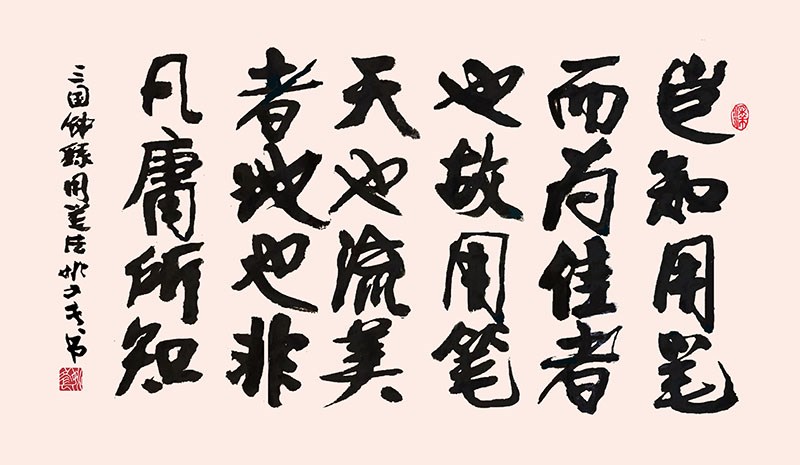 岂知用笔
而为佳者
也故用笔
天也流美
者地也非
凡庸所知
三国钟繇用笔法